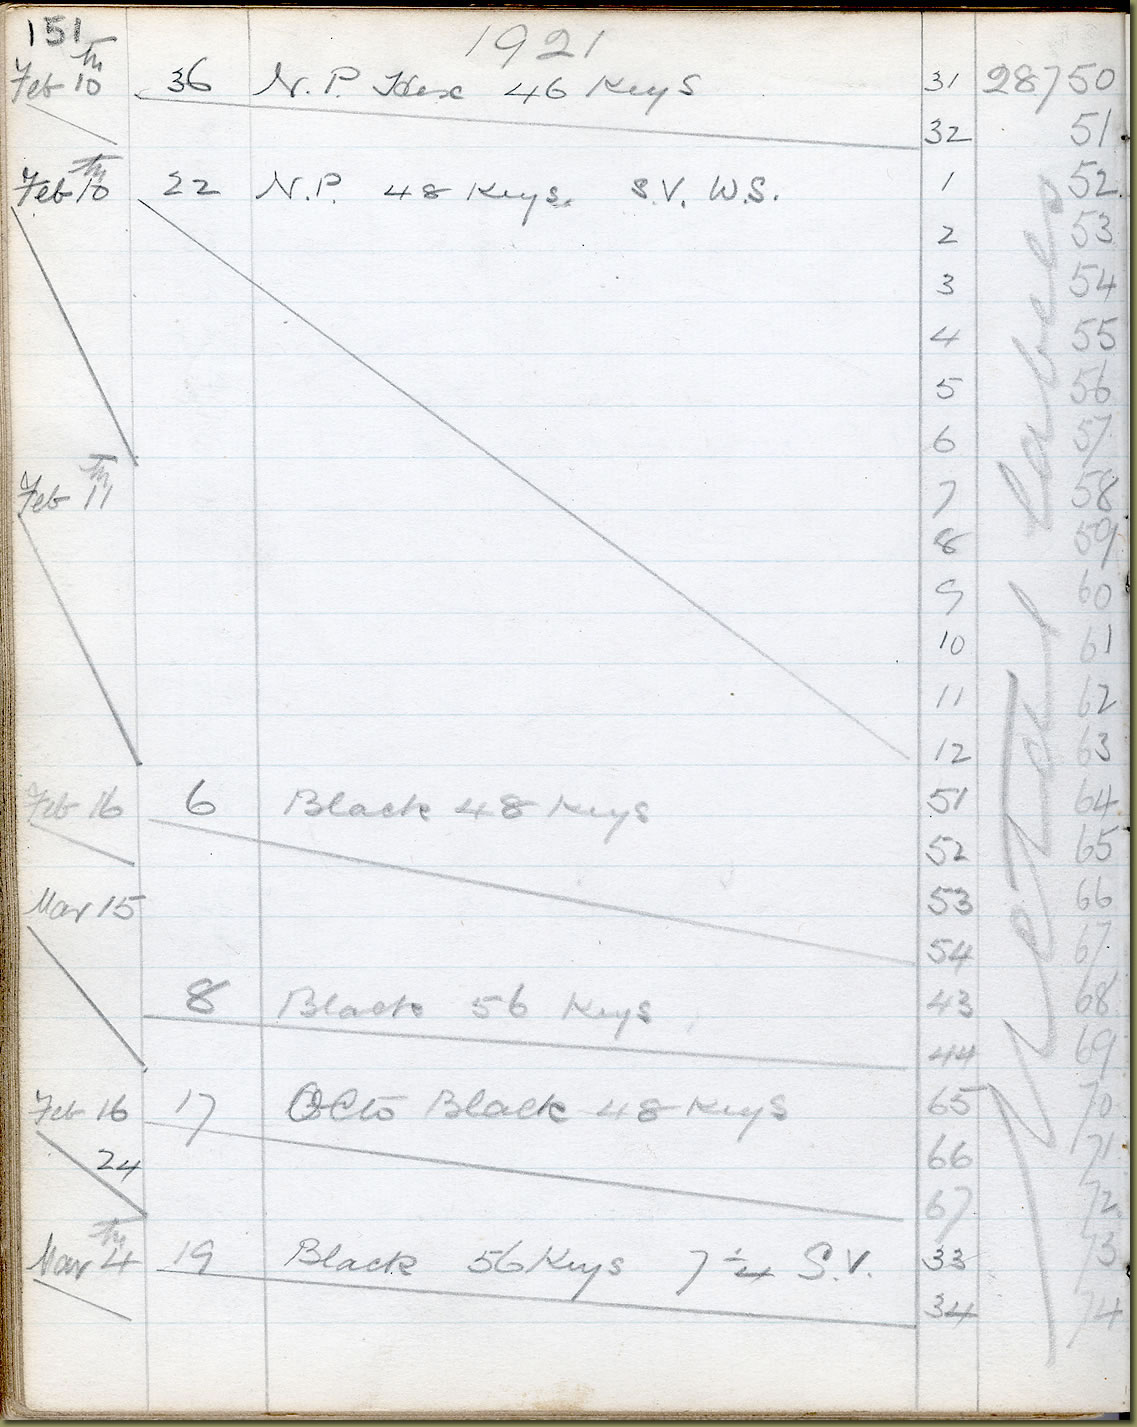 151
1921
Feb 10th 36 N.P. Hex 46 Keys 31 28750
32 51
Feb 10th 22 N.P. 48 Keys. S.V. W.S. 1 52
2 53
3 54
4 55
5 56
6 57
Feb 11th 7 58
8 59
9 60
10 61
11 62
12 63
Feb 16 6 Black 48 Keys 51 64
52 65
Mar 15 53 66
54 67
8 Black 56 Keys 43 68
44 69
Feb 16 17 Octo Black 48 Keys 65 70
24 66 71
67 72
Mar 4th 19 Black 56 Keys 7 1/4 S.V. 33 73
34 74
Metal Labels